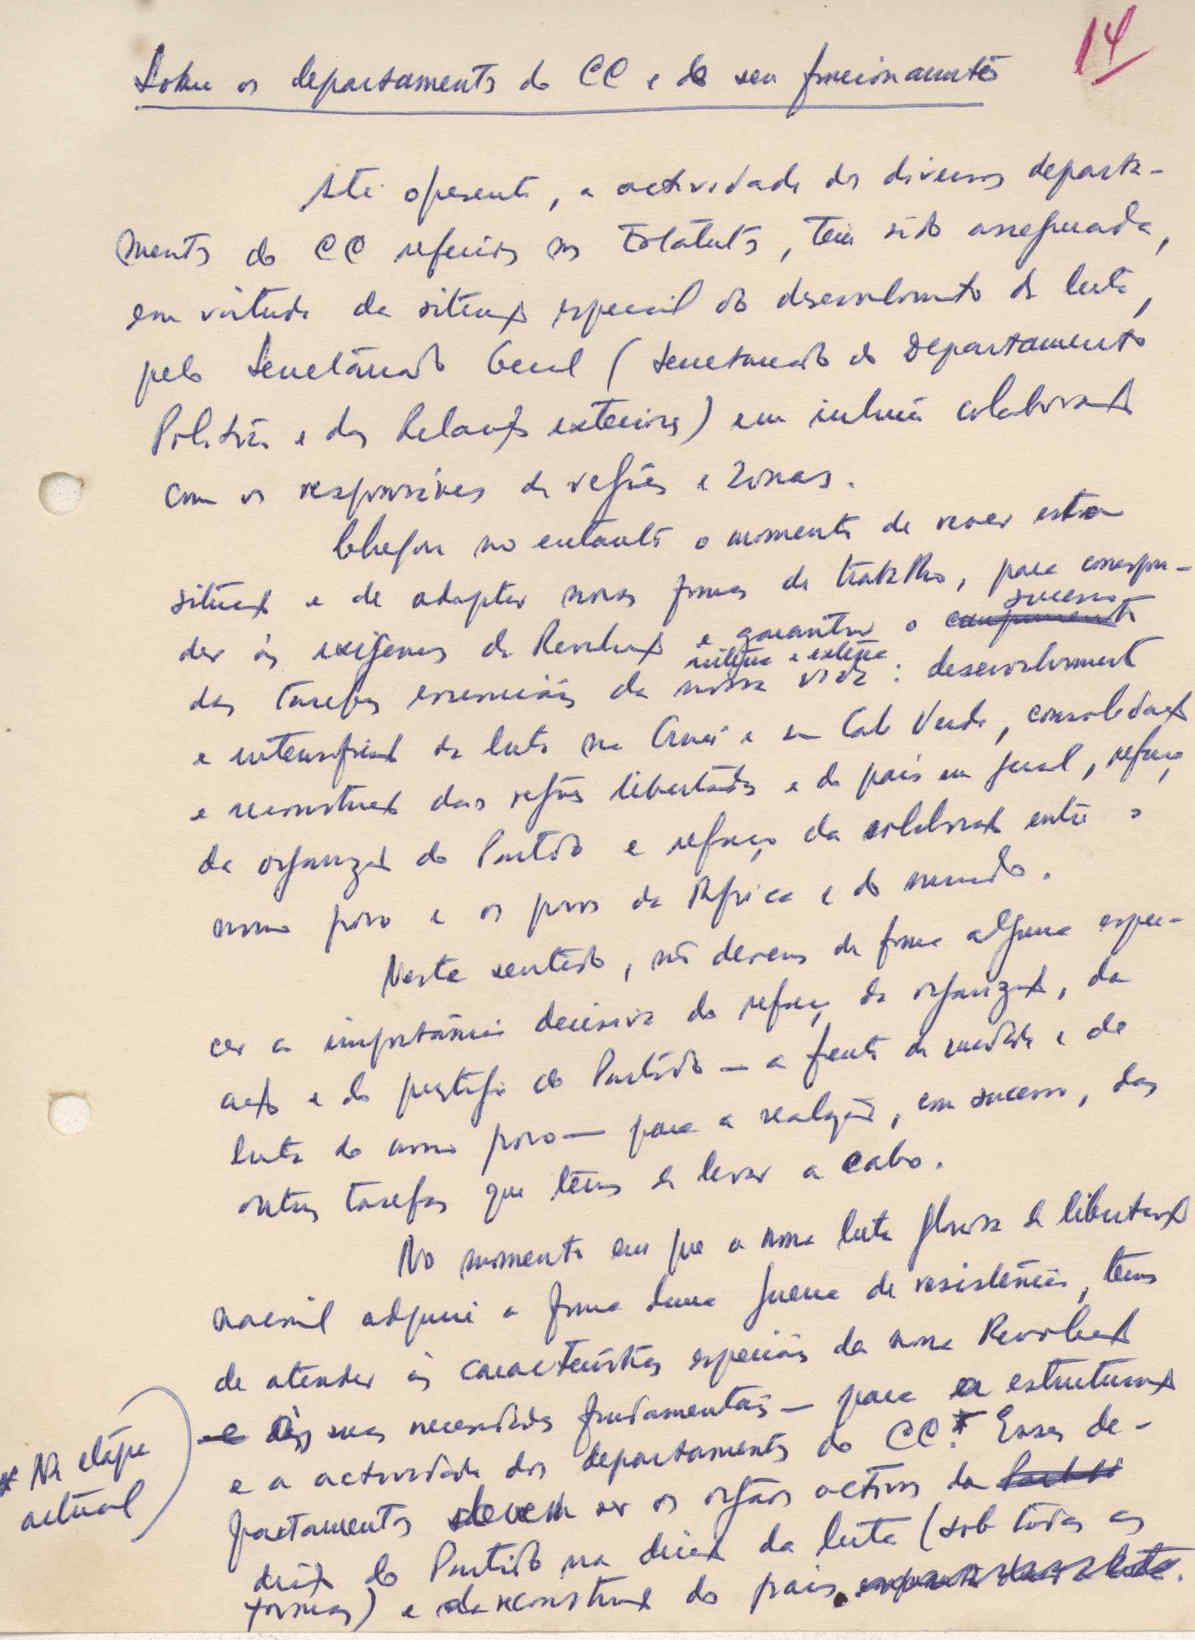 14
Sobre os departamentos do CC e do seu funcionamento
Até o presente, a actividade dos diversos departa-
mentos do CC referidos nos Estatutos, tem sido assegurada,
em virtude da situação especial do desenvolvimento da luta,
pelo Secretariado Geral (Secretariado do Departamento
Político e das Relações exteriores) em íntima colaboração
com os responsáveis de regiões e zonas.
Chegou no entanto o momento de rever esta
situação e de adoptar novas formas de trabalho, para correspon-
der às exigências da Revolução e garantir o sucesso
das tarefas essenciais da nossa vida interna e externa: desenvolvimento
e intensificação da luta na Guiné e em Cabo Verde, consolidação
e reconstrução das regiões libertadas e do país em geral, reforço
da organização do Partido e reforço da colaboração entre o
nosso povo e os povos da África e do mundo.
Neste sentido, não devemos de forma alguma esque-
cer a importância decisiva do reforço da organização, da
acção e do prestígio do Partido — a frente da unidade e de
luta do nosso povo — para a realização, com sucesso, das
outras tarefas que temos de levar a cabo.
No momento em que a nossa luta gloriosa de libertação
nacional adquire a forma duma guerra de resistência, temos
de atender às características especiais da nossa Revolução
e às suas necessidades fundamentais — para a estruturação
e a actividade dos departamentos do CC.* Esses de-
partamentos devem ser os órgãos activos da
direcção do Partido na direcção da luta (sob todas as
formas) e da reconstrução do país.
* Na etapa
actual